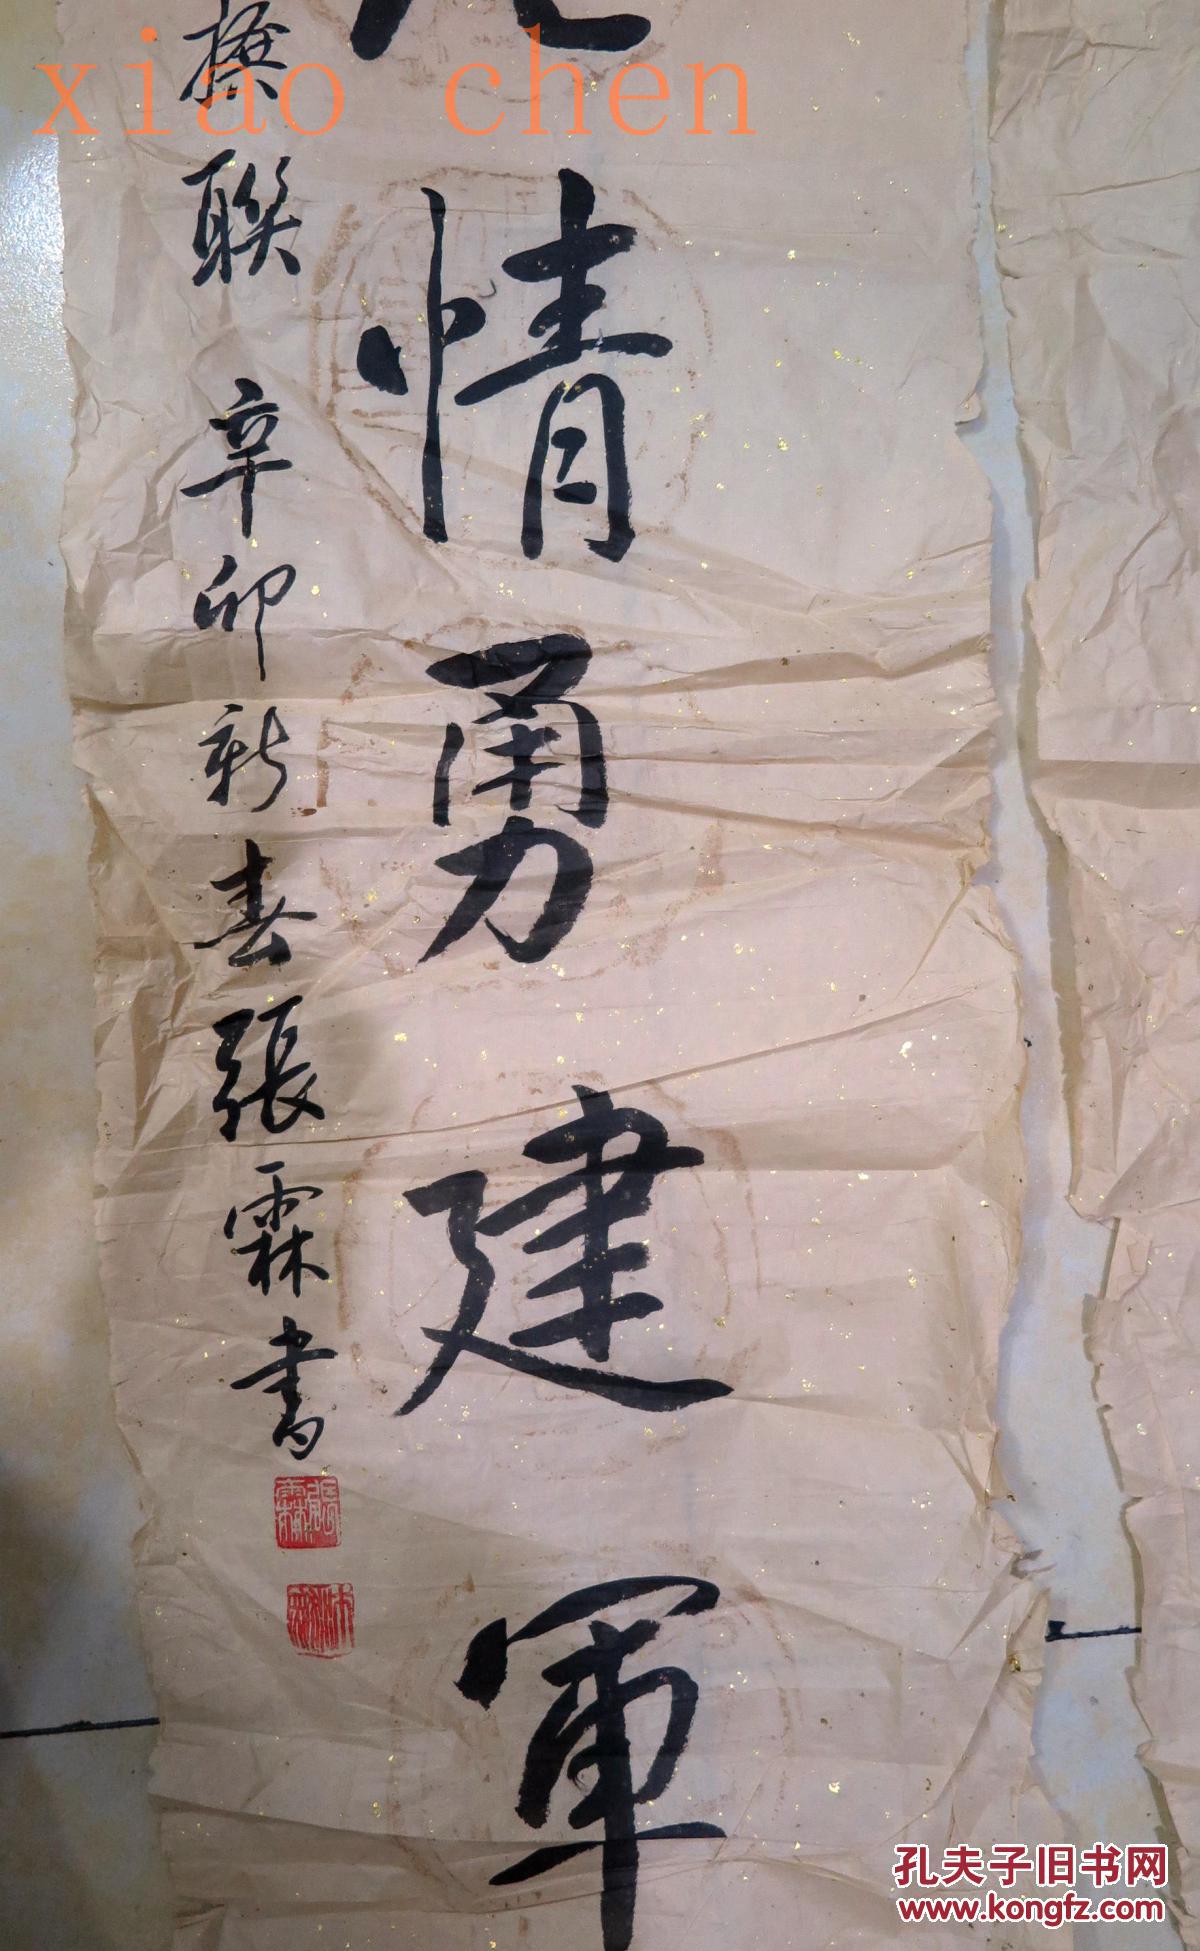 xiao chen
情勇建軍
聯辛卯新春張霖書
張霖
孔夫子旧书网
www.kongfz.com